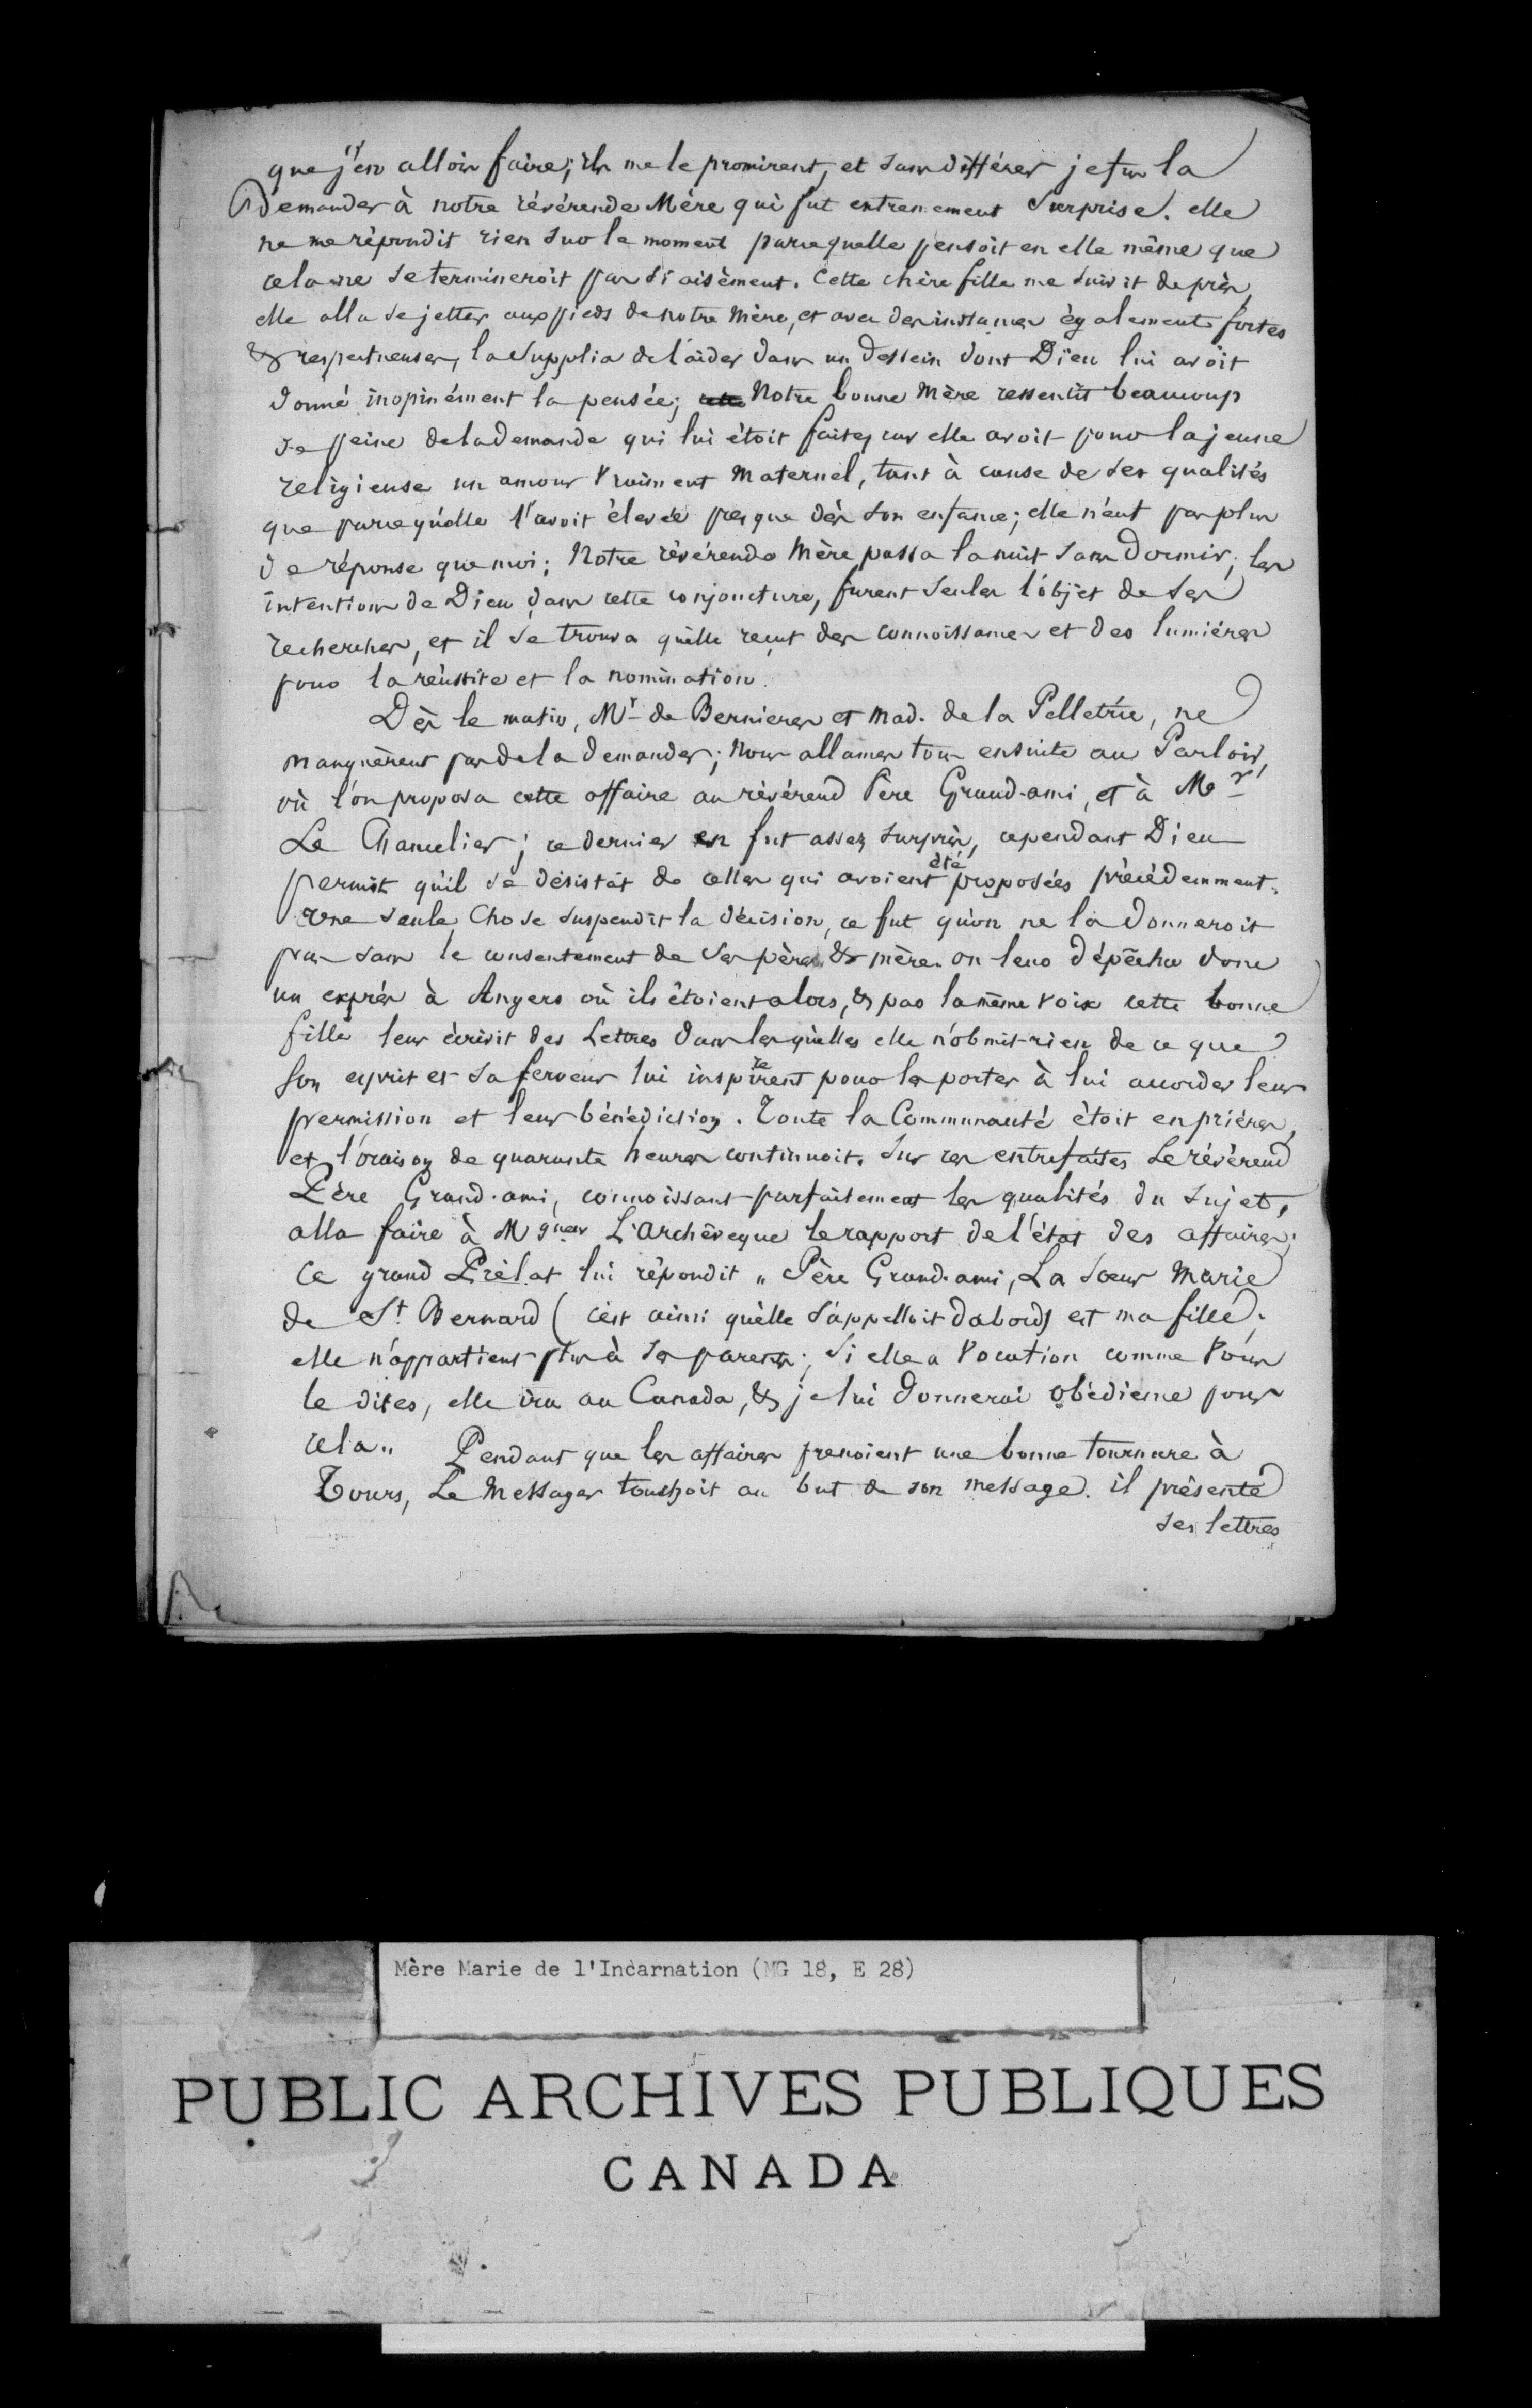 que j'en allois faire; ils me le promirent, et sans différer je fus la
demander à notre révérende Mère qui fut extremement Surprise. elle
ne me répondit rien sur le moment parcequelle pensoit en elle même que
cela ne se termineroit pas si aisèment. Cette chère fille me suivit de près,
elle alla se jetter aux pieds de notre Mère, et avec des instances ègalement fortes
& respectueuses, la supplia de l'aider dans un dessein dont Dieu lui avoit
donné inopinément la pensée; Notre bonne Mère ressentit beaucoup
de peine de la demande qui lui étoit faite, car elle avoit pour la jeune
religieuse un amour vraiment Maternel, tant à cause de ses qualités
que parcequ'elle l'avoit élevée presque dès son enfance; elle n'eut pas plus
de réponse que moi; Notre révérende Mère passa la nuit sans dormir; les
intentions de Dieu dans cette conjoncture, furent seules l'objet de ses
recherches, et il se trouva qu'elle reçut des connoissances et des lumières
pour la réussite et la nomination.
Dès le matin, Mr de Bernieres et Mad. de la Pelletrie, ne
manquèrent pas de la demander; Nous allames tous ensuite au Parloir,
où l'on proposa cette affaire au révérend Père Grand-ami, et à Mr
Le Chancelier; ce dernier en fut assez surpris, cependant Dieu
permit qu'il se désistât de celles qui avoient été proposées précédemment.
Une seule Chose suspendit la décision, ce fut qu'on ne la donneroit
pas sans le consentement de ses père & mère. on leur dépêcha donc
un exprès à Angers où ils étoient alors, & par la même voix cette bonne
fille leur écrivit des Lettres dans lesquelles elle n'obmit rien de ce que
son esprit et sa ferveur lui inspirèrent pour les porter à lui accorder leur
permission et leur bénédiction. Toute la Communauté étoit en prières,
et l'oraison de quarante heures continuoit. Sur ces entrefaites Le révérend
Père Grand-ami, connoissant parfaitement les qualités du sujet,
alla faire à Mgneur L'Archêveque le rapport de l'état des affaires;
Ce grand Prélat lui répondit " Père Grand-ami, La Soeur Marie
de St Bernard (c'est ainsi qu'elle s'appelloit dabord) est ma fille,
elle n'appartient plus à ses parents; Si elle a vocation comme vous
le dites, elle ira au Canada, & je lui donnerai obédience pour
cela " Pendant que les affaires prenoient une bonne tournure à
Tours, Le Messager touchoit au but de son message. il présente
ses lettres
Mère Marie de l'Incarnation (MG 18, E 28)
PUBLIC ARCHIVES PUBLIQUES
CANADA